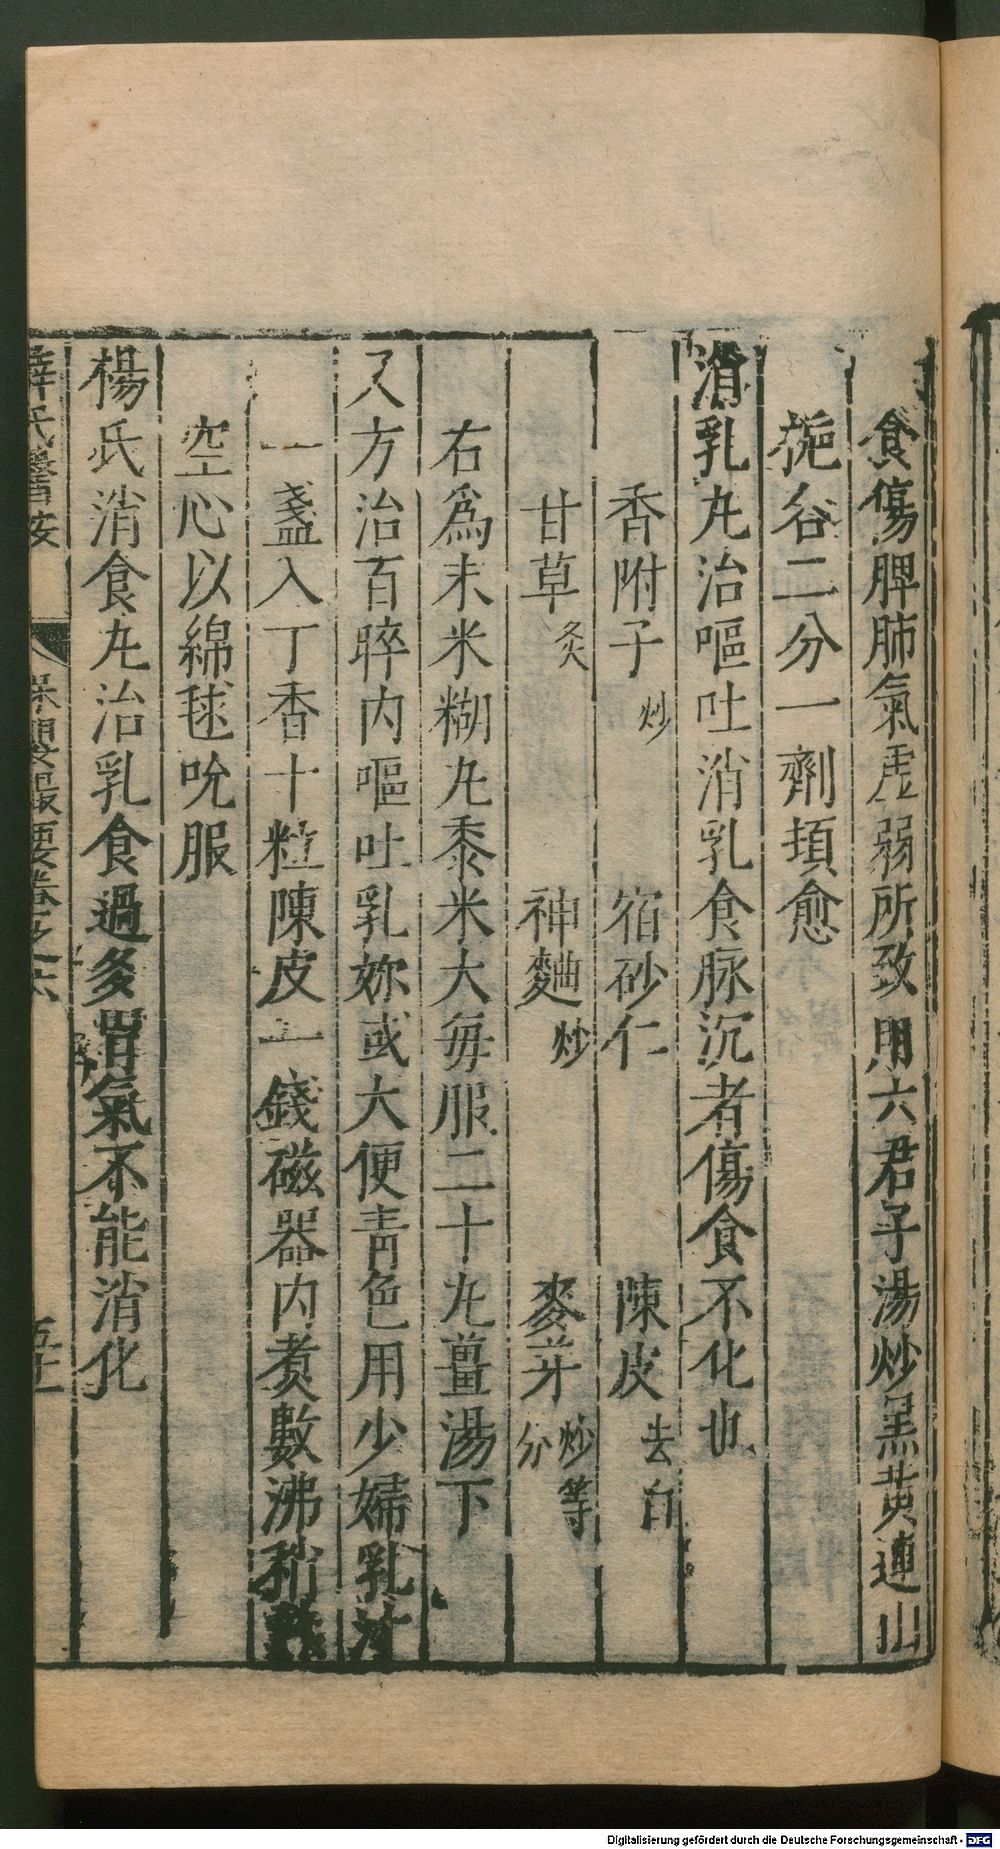 食傷脾肺氣虛弱所致用六君子湯炒黑黃連山
梔各二分一劑頓愈
消乳丸治嘔吐消乳食脉沉者傷食不化也
香附子炒 宿砂仁 陳皮去白
甘草炙 神麯炒 麥芽炒等分
右爲末米糊丸黍米大每服二十丸薑湯下
又方治百晬內嘔吐乳妳或大便青色用少婦乳汁
一盞入丁香十粒陳皮一錢磁器內煮數沸稍
空心以綿毬吮服
楊氏消食丸治乳食過多胃氣不能消化
薛氏醫按 保嬰撮要卷之六 五十一
Digitalisierung gefördert durch die Deutsche Forschungsgemeinschaft - DFG